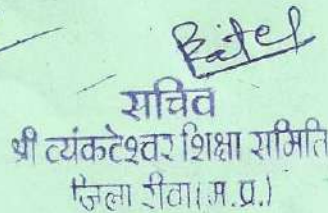 Patel
सचिव
श्री व्यंकटेश्वर शिक्षा समिति
जिला रीवा (म.प्र.)